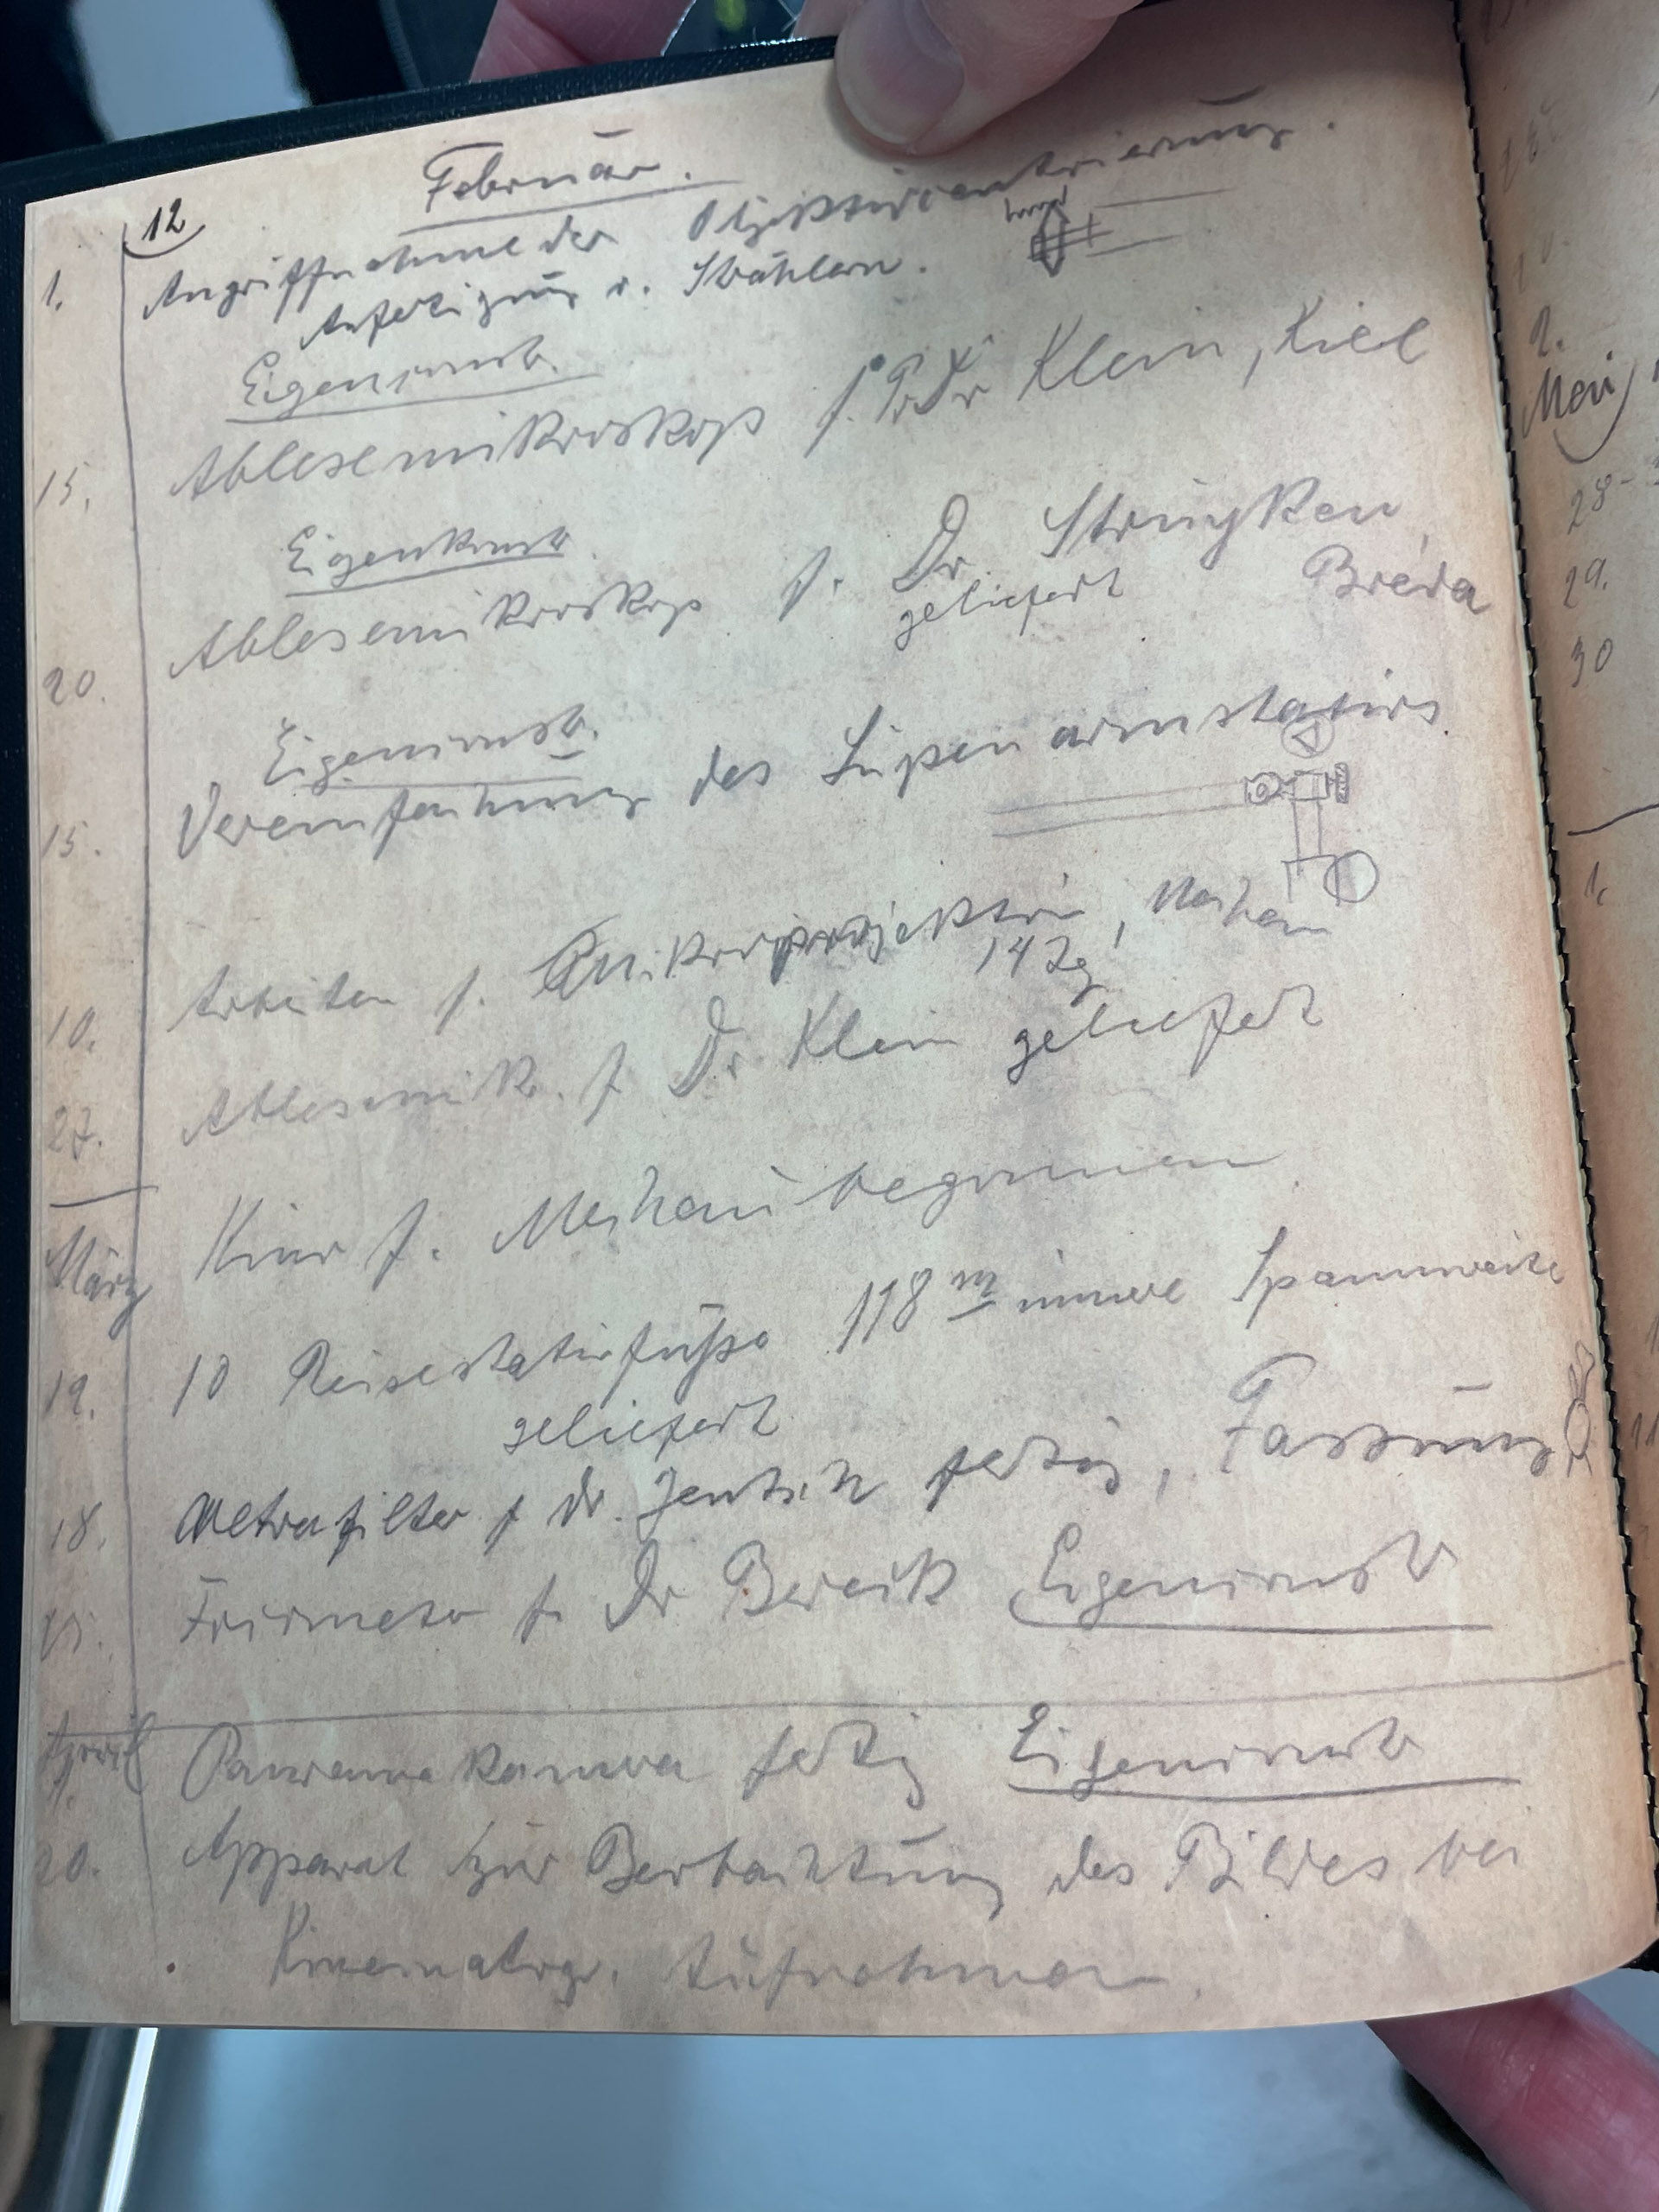 Februar.
12
1. Angriffnahme der Objektivzentrierung.
Anfertigung v. Strählern.
Eigenkonstr.
15. Ablesemikroskop f. Pr Dr Klein, Kiel
Eigenkonstr.
20. Ablesemikroskop f. Dr. Struyken,
geliefert Breda
Eigenkonstr.
15. Vereinfachung des Lupenarmstativs
10. Arbeiten f. Mikroprojektion, Mechau
14 Tg
27. Ablesemik. f Dr. Klein geliefert
März Kino f. Mechau begonnen
19. 10 Reisestativfüße 118 m innere Spannweite
geliefert
18. Ultrafilter f Dr. Jentsch fertig, Fassung
15. f. Dr Bereck Eigenkonstr
April Panoramakamera fertig Eigenkonstr
20. Apparat zur Beobachtung des Bildes bei
Kinematogr. Aufnahmen.
2.
Mai
28
29.
30
1.